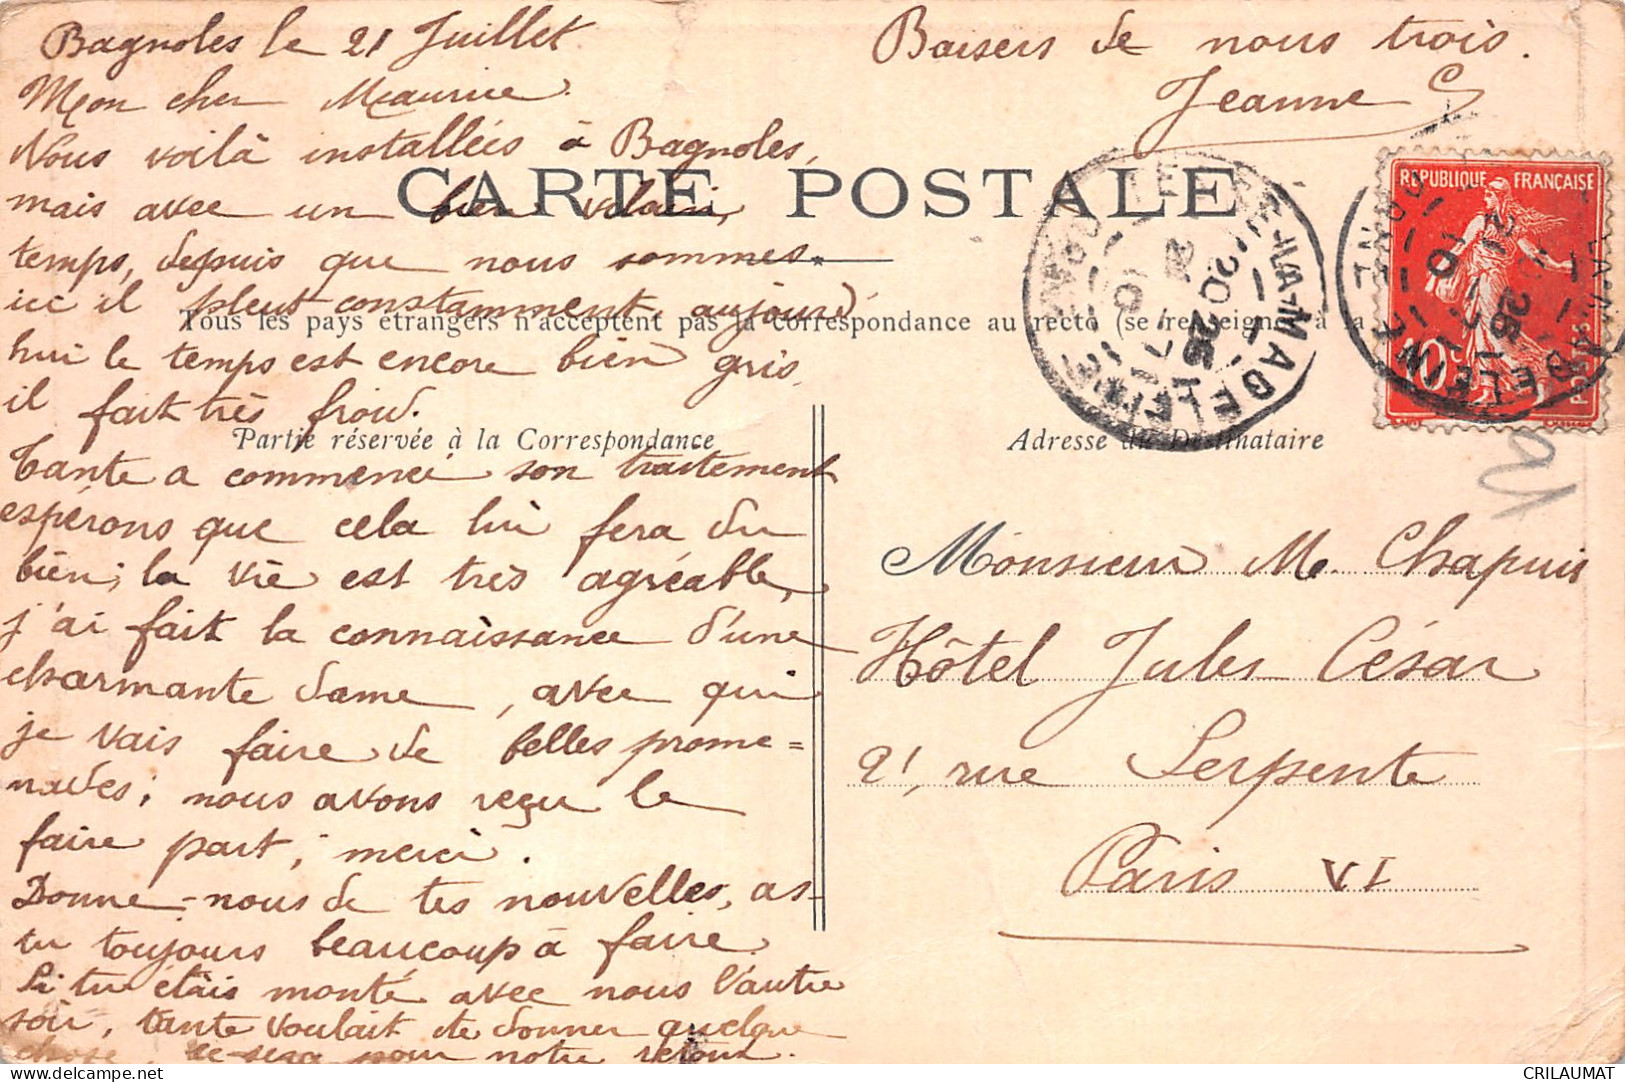 Bagnoles le 21 Juillet
Mon cher Maurice
Nous voilà installées à Bagnoles,
mais avec un bien vilain
temps, depuis que nous sommes
ici il pleut constamment, aujourd'
hui le temps est encore bien gris,
il fait très froid.
Tante a commencé son traitement
espérons que cela lui fera du
bien; la vie est très agréable,
j'ai fait la connaissance d'une
charmante dame, avec qui
je vais faire de belles prome=
nades; nous avons reçu le
faire part, merci.
Donne-nous de tes nouvelles, as-
tu toujours beaucoup à faire
Si tu étais monté avec nous l'autre
soir, tante voulait te donner quelque
chose, ce sera pour notre retour.
Baisers de nous trois.
Jeanne S
CARTE POSTALE
Tous les pays étrangers n'acceptent pas la correspondance au recto (se renseigner à la
Partie réservée à la Correspondance
Adresse du Destinataire
REPUBLIQUE FRANÇAISE
10c
POSTES
LA-MADELEINE
Monsieur M. Chapuis
Hôtel Jules César
21, rue Serpente
Paris VI
CRILAUMAT